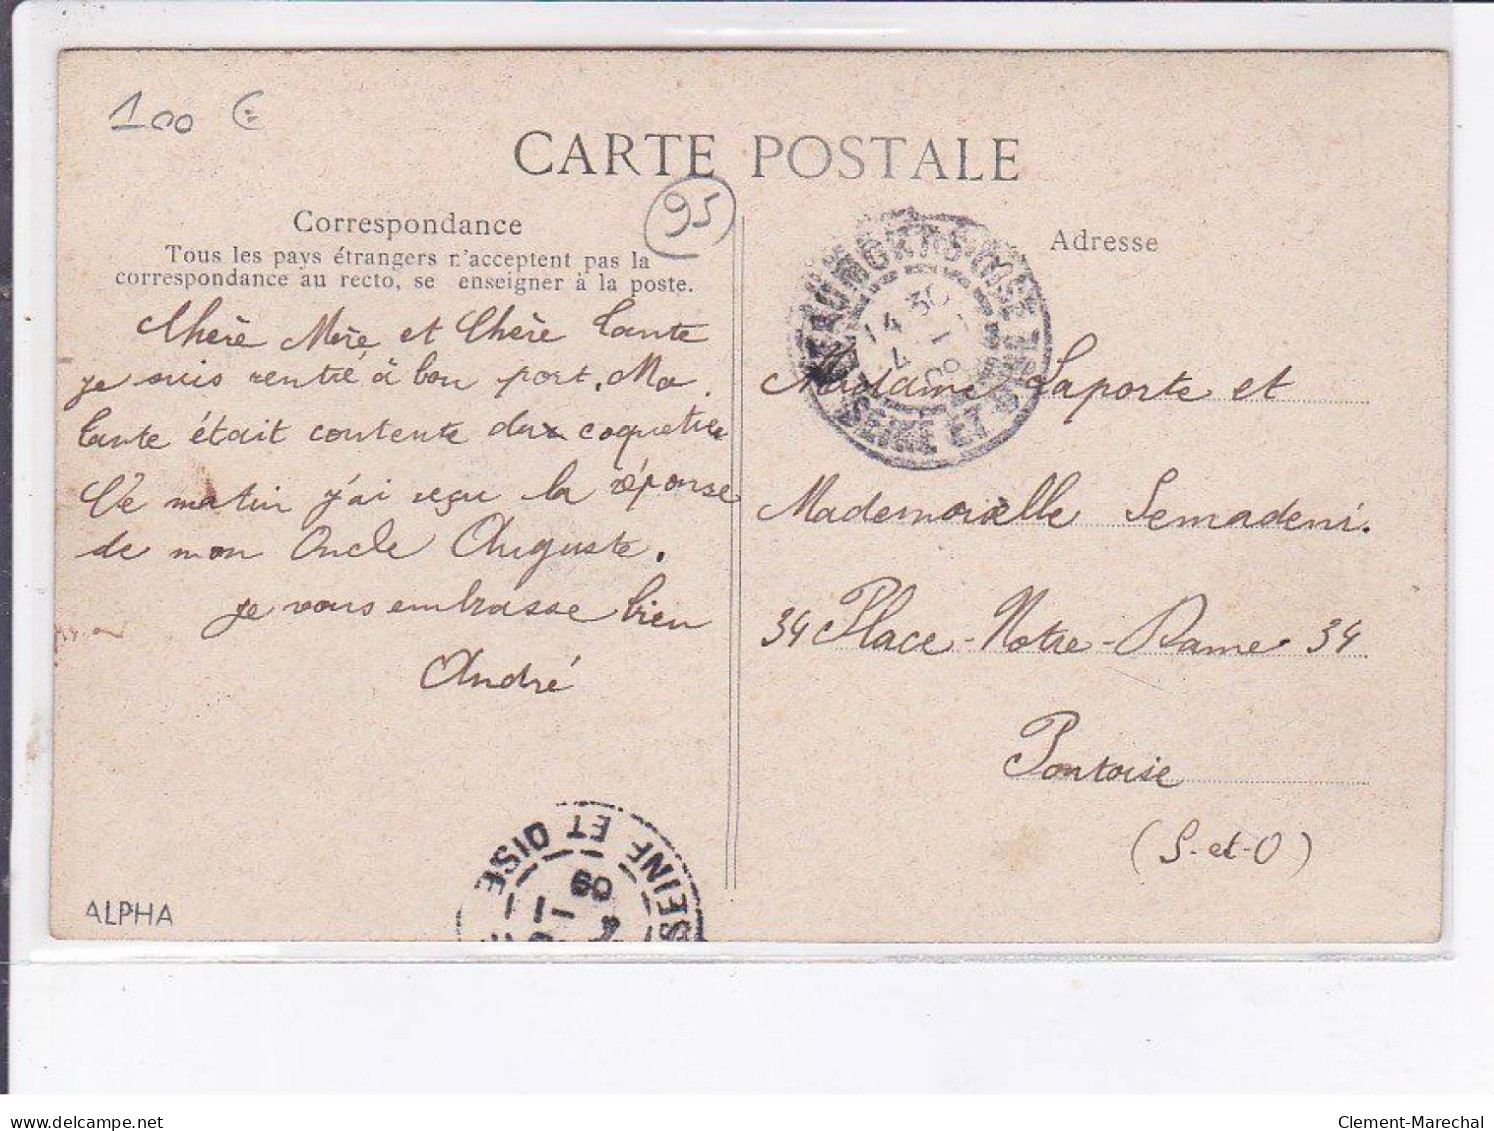 100 €
CARTE POSTALE
95
Correspondance
Tous les pays étrangers n'acceptent pas la
correspondance au recto, se enseigner à la poste.
Chère Mère et Chère Tante
je suis rentré à bon port. Ma
tante était contente du coquetier
Ce matin j'ai reçu la réponse
de mon Oncle Auguste.
je vous embrasse bien
André
Adresse
BEAUMONT-S-OISE
SEINE ET OISE
14 30
4 - 1
09
Madame Laporte et
Mademoiselle Semadeni.
34 Place-Notre-Dame 34
Pontoise
(S-et-O)
SEINE ET OISE
09
ALPHA
delcampe.net
Clement-Marechal